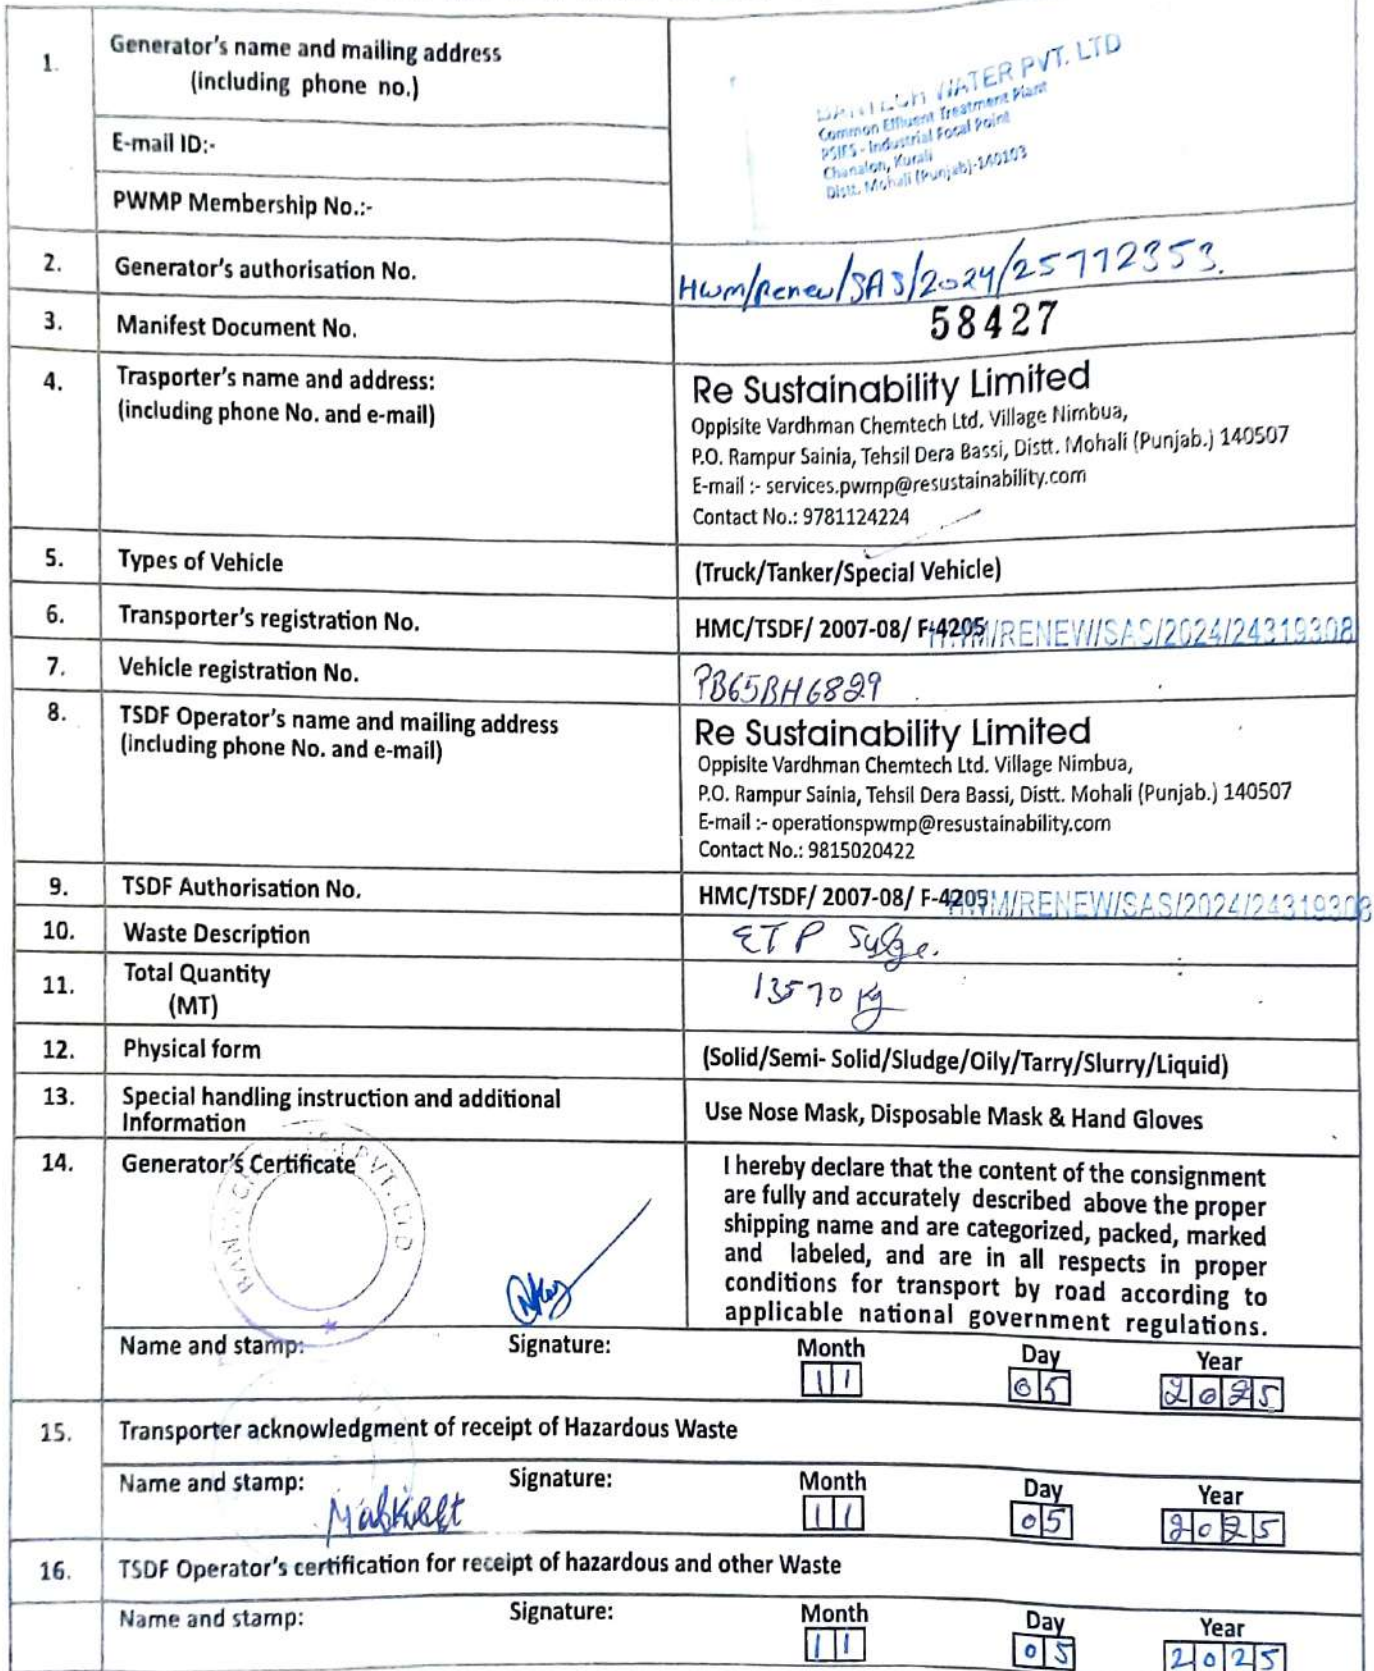 1.
Generator's name and mailing address
(including phone no.)
WATER PVT. LTD
Common Effluent Treatment Plant
PSIFS - Industrial Focal Point
Chanalon, Kurali
Distt. Mohali (Punjab)-140103
E-mail ID:-
PWMP Membership No.:-
2. Generator's authorisation No. Hwm/Renew/SAS/2024/25772353.
3. Manifest Document No. 58427
4. Trasporter's name and address:
(including phone No. and e-mail)
Re Sustainability Limited
Oppisite Vardhman Chemtech Ltd. Village Nimbua,
P.O. Rampur Sainia, Tehsil Dera Bassi, Distt. Mohali (Punjab.) 140507
E-mail :- services.pwmp@resustainability.com
Contact No.: 9781124224
5. Types of Vehicle (Truck/Tanker/Special Vehicle)
6. Transporter's registration No. HMC/TSDF/ 2007-08/ F-4205 HWM/RENEW/SAS/2024/24319308
7. Vehicle registration No. PB65BH6829
8. TSDF Operator's name and mailing address
(including phone No. and e-mail)
Re Sustainability Limited
Oppisite Vardhman Chemtech Ltd. Village Nimbua,
P.O. Rampur Sainia, Tehsil Dera Bassi, Distt. Mohali (Punjab.) 140507
E-mail :- operationspwmp@resustainability.com
Contact No.: 9815020422
9. TSDF Authorisation No. HMC/TSDF/ 2007-08/ F-4205 HWM/RENEW/SAS/2024/24319308
10. Waste Description ETP Sulge.
11. Total Quantity
(MT)
13570 kg
12. Physical form (Solid/Semi- Solid/Sludge/Oily/Tarry/Slurry/Liquid)
13. Special handling instruction and additional
Information
Use Nose Mask, Disposable Mask & Hand Gloves
14. Generator's Certificate
PVT. LTD
I hereby declare that the content of the consignment
are fully and accurately described above the proper
shipping name and are categorized, packed, marked
and labeled, and are in all respects in proper
conditions for transport by road according to
applicable national government regulations.
Name and stamp: Signature: Month Day Year
11 05 2025
15. Transporter acknowledgment of receipt of Hazardous Waste
Name and stamp: Signature: Month Day Year
11 05 2025
16. TSDF Operator's certification for receipt of hazardous and other Waste
Name and stamp: Signature: Month Day Year
11 05 2025